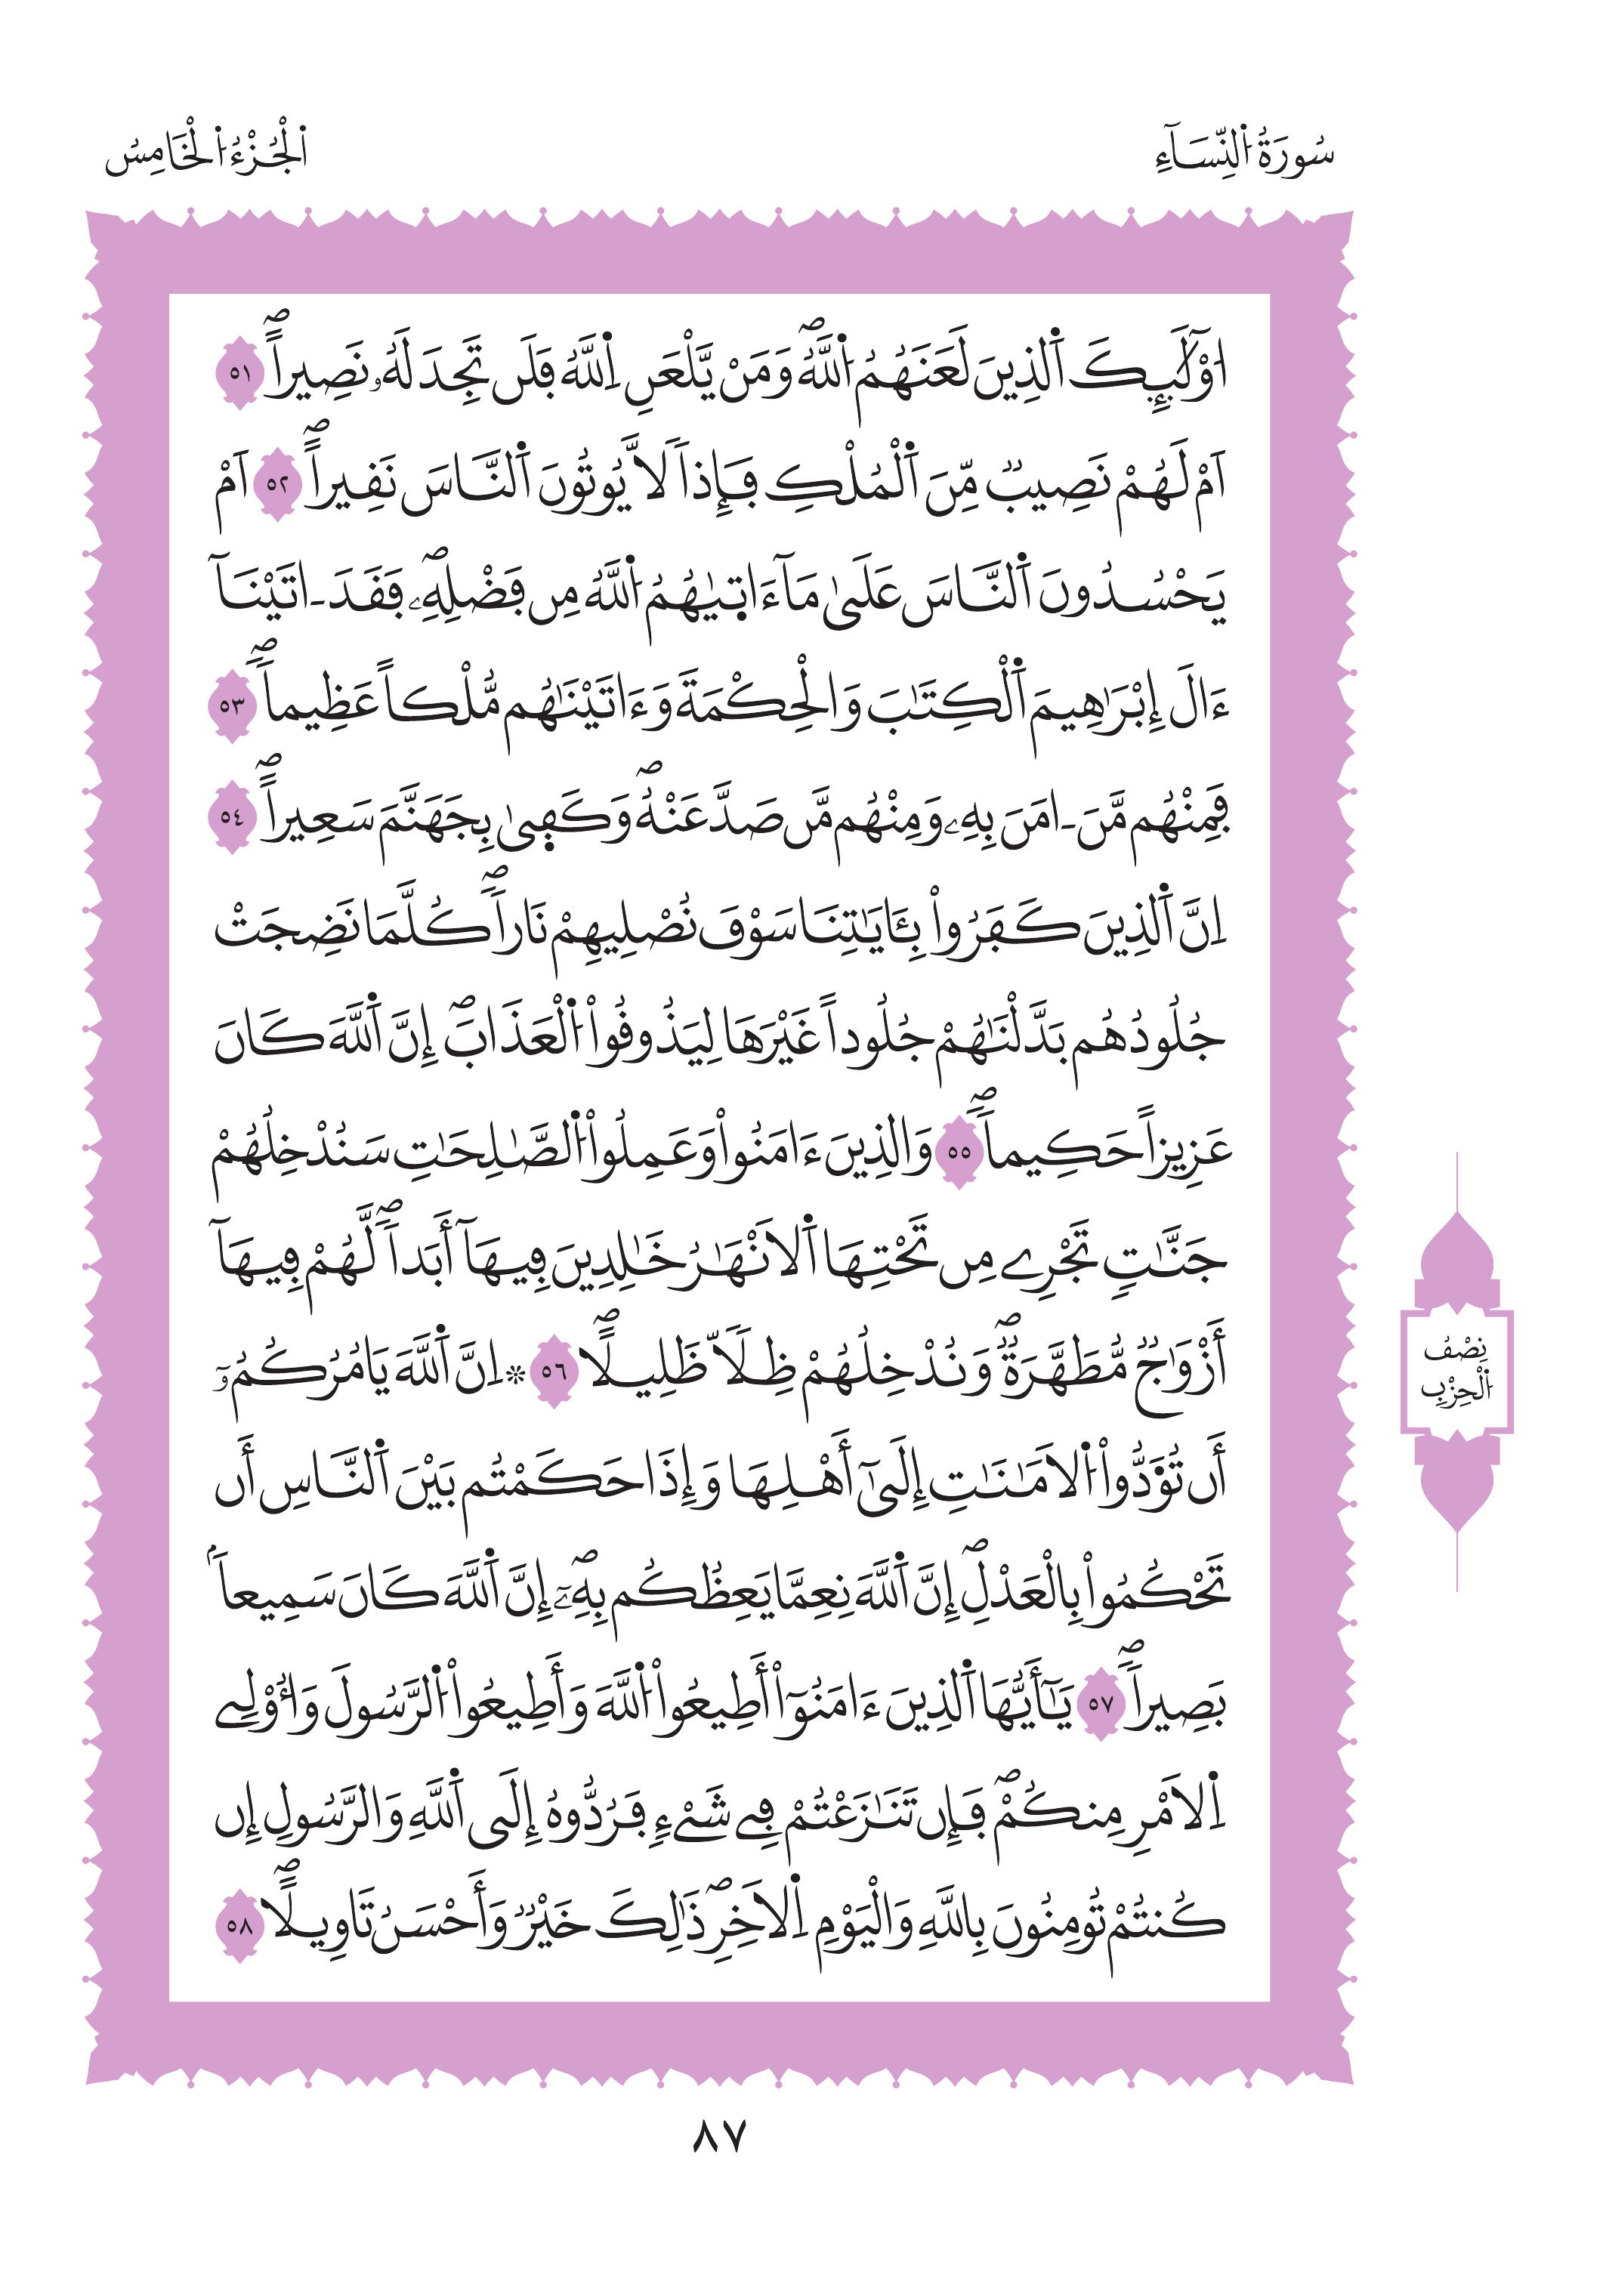 سُورَةُ اُ۬لنِّسَآءِ
اَ۬لْجُزْءُ اُ۬لْخَامِسُ
اُوْلَٰٓئِكَ اَ۬لذِينَ لَعَنَهُمُ اُ۬للَّهُۖ وَمَنْ يَّلْعَنِ اِ۬للَّهُ فَلَن تَجِدَ لَهُۥ نَصِيراًۖ ٥١
اَمْ لَهُمْ نَصِيبٞ مِّنَ اَ۬لْمُلْكِ فَإِذاَ لَّا يُوتُونَ اَ۬لنَّاسَ نَقِيراًۖ ٥٢ اَمْ
يَحْسُدُونَ اَ۬لنَّاسَ عَلَىٰ مَآ ءَات۪يٰهُمُ اُ۬للَّهُ مِن فَضْلِهِۦۖ فَقَدَ ـ اتَيْنَآ
ءَالَ إِبْرَٰهِيمَ اَ۬لْكِتَٰبَ وَالْحِكْمَةَ وَءَاتَيْنَٰهُم مُّلْكاً عَظِيماَۖ ٥٣
فَمِنْهُم مَّنَ ـ امَنَ بِهِۦ وَمِنْهُم مَّن صَدَّ عَنْهُۖ وَكَف۪يٰ بِجَهَنَّمَ سَعِيراًۖ ٥٤
اِنَّ اَ۬لذِينَ كَفَرُواْ بِـَٔايَٰتِنَا سَوْفَ نُصْلِيهِمْ نَاراَۖ كُلَّمَا نَضِجَتْ
جُلُودُهُم بَدَّلْنَٰهُمْ جُلُوداً غَيْرَهَا لِيَذُوقُواْ اُ۬لْعَذَابَۖ إِنَّ اَ۬للَّهَ كَانَ
عَزِيزاً حَكِيماَۖ ٥٥ وَالذِينَ ءَامَنُواْ وَعَمِلُواْ اُ۬لصَّٰلِحَٰتِ سَنُدْخِلُهُمْ
جَنَّٰتٖ تَجْرِے مِن تَحْتِهَا اَ۬لَانْهَٰرُ خَٰلِدِينَ فِيهَآ أَبَداَۖ لَّهُمْ فِيهَآ
أَزْوَٰجٞ مُّطَهَّرَةٞۖ وَنُدْخِلُهُمْ ظِلّاَ ظَلِيلاًۖ ٥٦ ۞ اِنَّ اَ۬للَّهَ يَامُرُكُمُۥٓ
أَن تُوَ۬دُّواْ اُ۬لَامَٰنَٰتِ إِلَىٰٓ أَهْلِهَا وَإِذَا حَكَمْتُم بَيْنَ اَ۬لنَّاسِ أَن
تَحْكُمُواْ بِالْعَدْلِۖ إِنَّ اَ۬للَّهَ نِعِمَّا يَعِظُكُم بِهِۦٓۖ إِنَّ اَ۬للَّهَ كَانَ سَمِيعاَۢ
بَصِيراَۖ ٥٧ يَٰٓأَيُّهَا اَ۬لذِينَ ءَامَنُوٓاْ أَطِيعُواْ اُ۬للَّهَ وَأَطِيعُواْ اُ۬لرَّسُولَ وَأُوْلِے
اِ۬لَامْرِ مِنكُمْۖ فَإِن تَنَٰزَعْتُمْ فِے شَےْءٖ فَرُدُّوهُ إِلَى اَ۬للَّهِ وَالرَّسُولِ إِن
كُنتُمْ تُومِنُونَ بِاللَّهِ وَالْيَوْمِ اِ۬لَاخِرِۖ ذَٰلِكَ خَيْرٞ وَأَحْسَنُ تَاوِيلاًۖ ٥٨
نِصْفُ
اُ۬لْحِزْبِ
٨٧